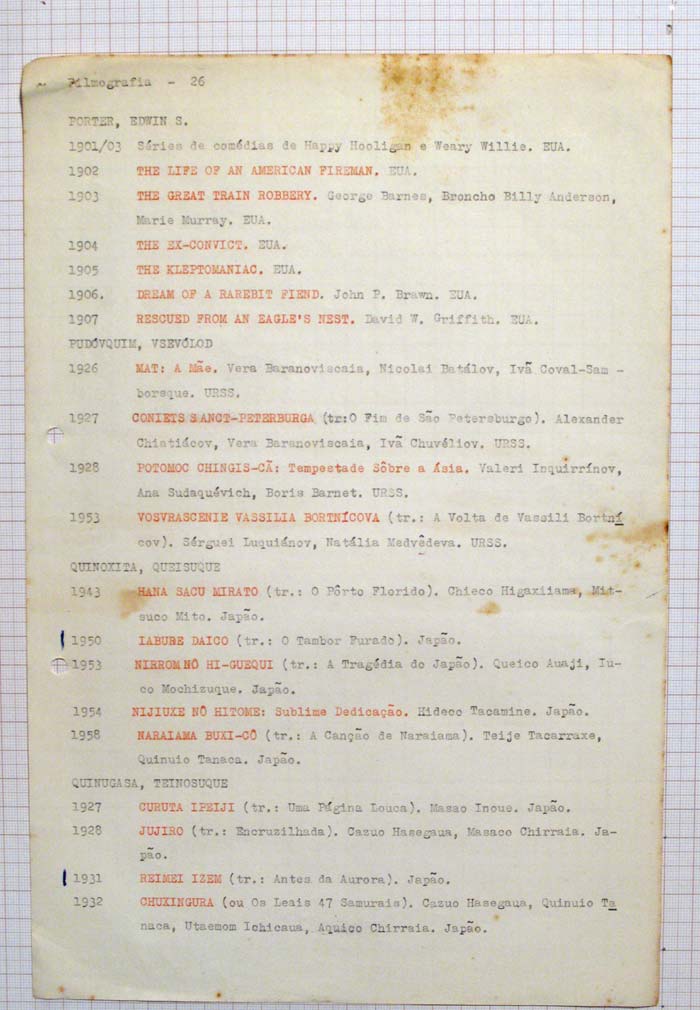 Filmografia - 26
PORTER, EDWIN S.
1901/03 Séries de comédias de Happy Hooligan e Weary Willie. EUA.
1902 THE LIFE OF AN AMERICAN FIREMAN. EUA.
1903 THE GREAT TRAIN ROBBERY. George Barnes, Broncho Billy Anderson,
Marie Murray. EUA.
1904 THE EX-CONVICT. EUA.
1905 THE KLEPTOMANIAC. EUA.
1906. DREAM OF A RAREBIT FIEND. John P. Brawn. EUA.
1907 RESCUED FROM AN EAGLE'S NEST. David W. Griffith. EUA.
PUDÓVQUIM, VSEVÓLOD
1926 MAT: A Mãe. Vera Baranoviscaia, Nicolai Batálov, Ivã Coval-Sam -
borsque. URSS.
1927 CONIETS SANCT-PETERBURGA (tr:O Fim de São Petersburgo). Alexander
Chiatiácov, Vera Baranoviscaia, Ivã Chuvéliov. URSS.
1928 POTOMOC CHINGIS-CÃ: Tempestade Sôbre a Ásia. Valeri Inquirrínov,
Ana Sudaquévich, Boris Barnet. URSS.
1953 VOSVRASCENIE VASSILIA BORTNÍCOVA (tr.: A Volta de Vassili Bortní
cov). Sérguei Luquiánov, Natália Medvêdeva. URSS.
QUINOXITA, QUEISUQUE
1943 HANA SACU MIRATO (tr.: O Pôrto Florido). Chieco Higaxiiama, Mit-
suco Mito. Japão.
1950 IABURE DAICO (tr.: O Tambor Furado). Japão.
1953 NIRROM NÔ HI-GUEQUI (tr.: A Tragédia do Japão). Queico Auaji, Iu-
co Mochizuque. Japão.
1954 NIJIUXE NÔ HITOME: Sublime Dedicação. Hideco Tacamine. Japão.
1958 NARAIAMA BUXI-CÔ (tr.: A Canção de Naraiama). Teije Tacarraxe,
Quinuio Tanaca. Japão.
QUINUGASA, TEINOSUQUE
1927 CURUTA IPEIJI (tr.: Uma Página Louca). Masao Inoue. Japão.
1928 JUJIRO (tr.: Encruzilhada). Cazuo Hasegaua, Masaco Chirraia. Ja-
pão.
1931 REIMEI IZEM (tr.: Antes da Aurora). Japão.
1932 CHUXINGURA (ou Os Leais 47 Samurais). Cazuo Hasegaua, Quinuio Ta
naca, Utaemom Ichicaua, Aquico Chirraia. Japão.